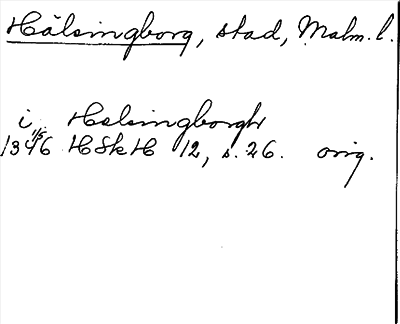 Hälsingborg, stad, Malm. l.
i Helsingborgh
1346 1/5 HSkH 12, s. 26. orig.